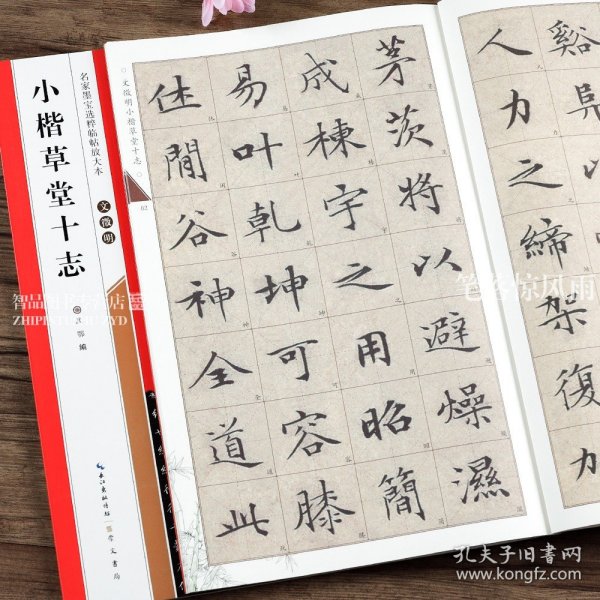 名家墨宝选粹临帖放大本
小楷草堂十志
文徵明
鄂编
长江出版传媒
崇文书局
文徵明小楷草堂十志
02
谿
人力之締架復力
茅茨将以避燥濕
成棟宇之用昭簡
易叶乾坤可容膝
休閒谷神全道此
ZHIPINTUSHUZYD
笔客惊风雨
孔夫子旧书网
www.kongfz.com